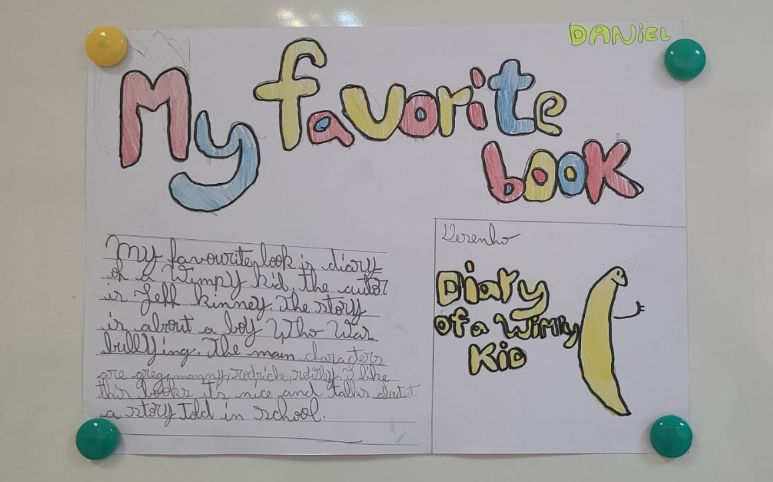 DANiEL
My favorite
book
My favouwrite book is diary
of a Wimpy kid. the autor
is Jeff kinney. The story
is about a boy Who Was
bullying. The main characters
are greg, manny, rodrick,
this books. Its nice and talks about
a story told in school.
Desenho
Diary
Of a WiMky
Kid